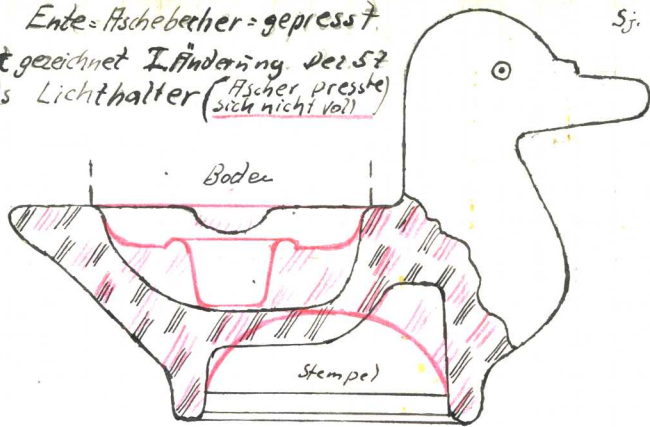 Ente = Aschebecher = gepresst.
Sj.
t gezeichnet I Änderung Dez. 57
s Lichthalter (Ascher presste
sich nicht voll)
Boden
Stempel